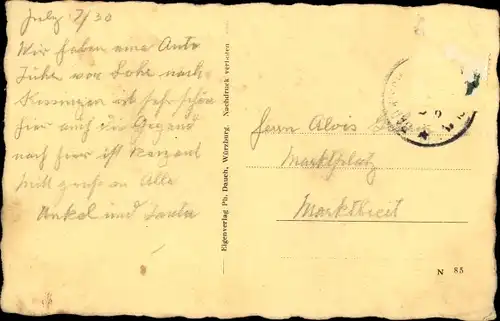 July 7/30
Wir haben eine Auto
von Lohr nach
Kissingen ist sehr schön
hier auch die Gegend
nach hier ist
mitt gruse an Alle
Onkel und Tante
Eigenverlag Ph. Dauch, Würzburg. Nachdruck verboten
Herrn Alois
Marktplatz
Marktbreit
N 85